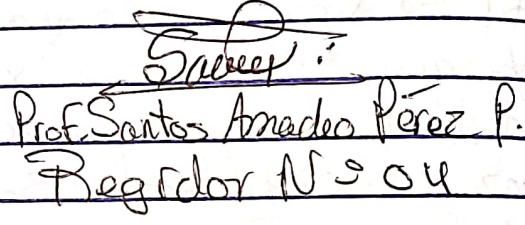 Prof. Santos Amadeo Pérez P.
Regidor Nº 04